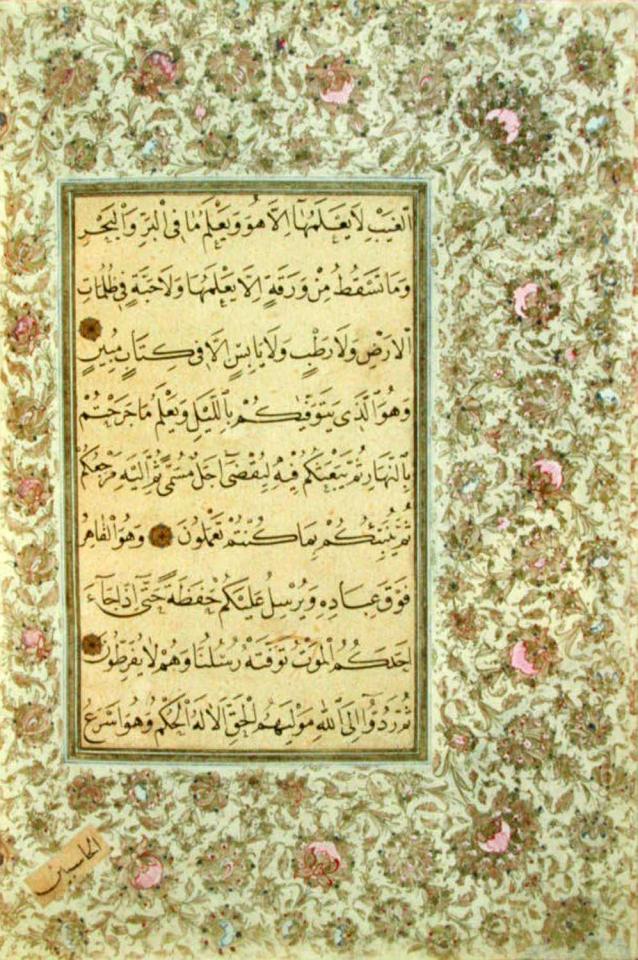 الْغَيْبِ لَا يَعْلَمُهَا إِلَّا هُوَ وَيَعْلَمُ مَا فِى الْبَرِّ وَالْبَحْرِ
وَمَا تَسْقُطُ مِنْ وَرَقَةٍ إِلَّا يَعْلَمُهَا وَلَا حَبَّةٍ فِى ظُلُمَاتِ
الْاَرْضِ وَلَا رَطْبٍ وَلَا يَابِسٍ إِلَّا فِى كِتَابٍ مُبِينٍ
وَهُوَ الَّذِى يَتَوَفّٰيكُمْ بِالَّيْلِ وَيَعْلَمُ مَا جَرَحْتُمْ
بِالنَّهَارِ ثُمَّ يَبْعَثُكُمْ فِيهِ لِيُقْضٰٓى اَجَلٌ مُسَمًّى ثُمَّ اِلَيْهِ مَرْجِعُكُمْ
ثُمَّ يُنَبِّئُكُمْ بِمَا كُنْتُمْ تَعْمَلُونَ وَهُوَ الْقَاهِرُ
فَوْقَ عِبَادِهِ وَيُرْسِلُ عَلَيْكُمْ حَفَظَةً حَتّٰٓى اِذَا جَآءَ
اَحَدَكُمُ الْمَوْتُ تَوَفَّتْهُ رُسُلُنَا وَهُمْ لَا يُفَرِّطُونَ
ثُمَّ رُدُّوٓا اِلَى اللّٰهِ مَوْلٰيهُمُ الْحَقِّ اَلَا لَهُ الْحُكْمُ وَهُوَ اَسْرَعُ
الحاسبين